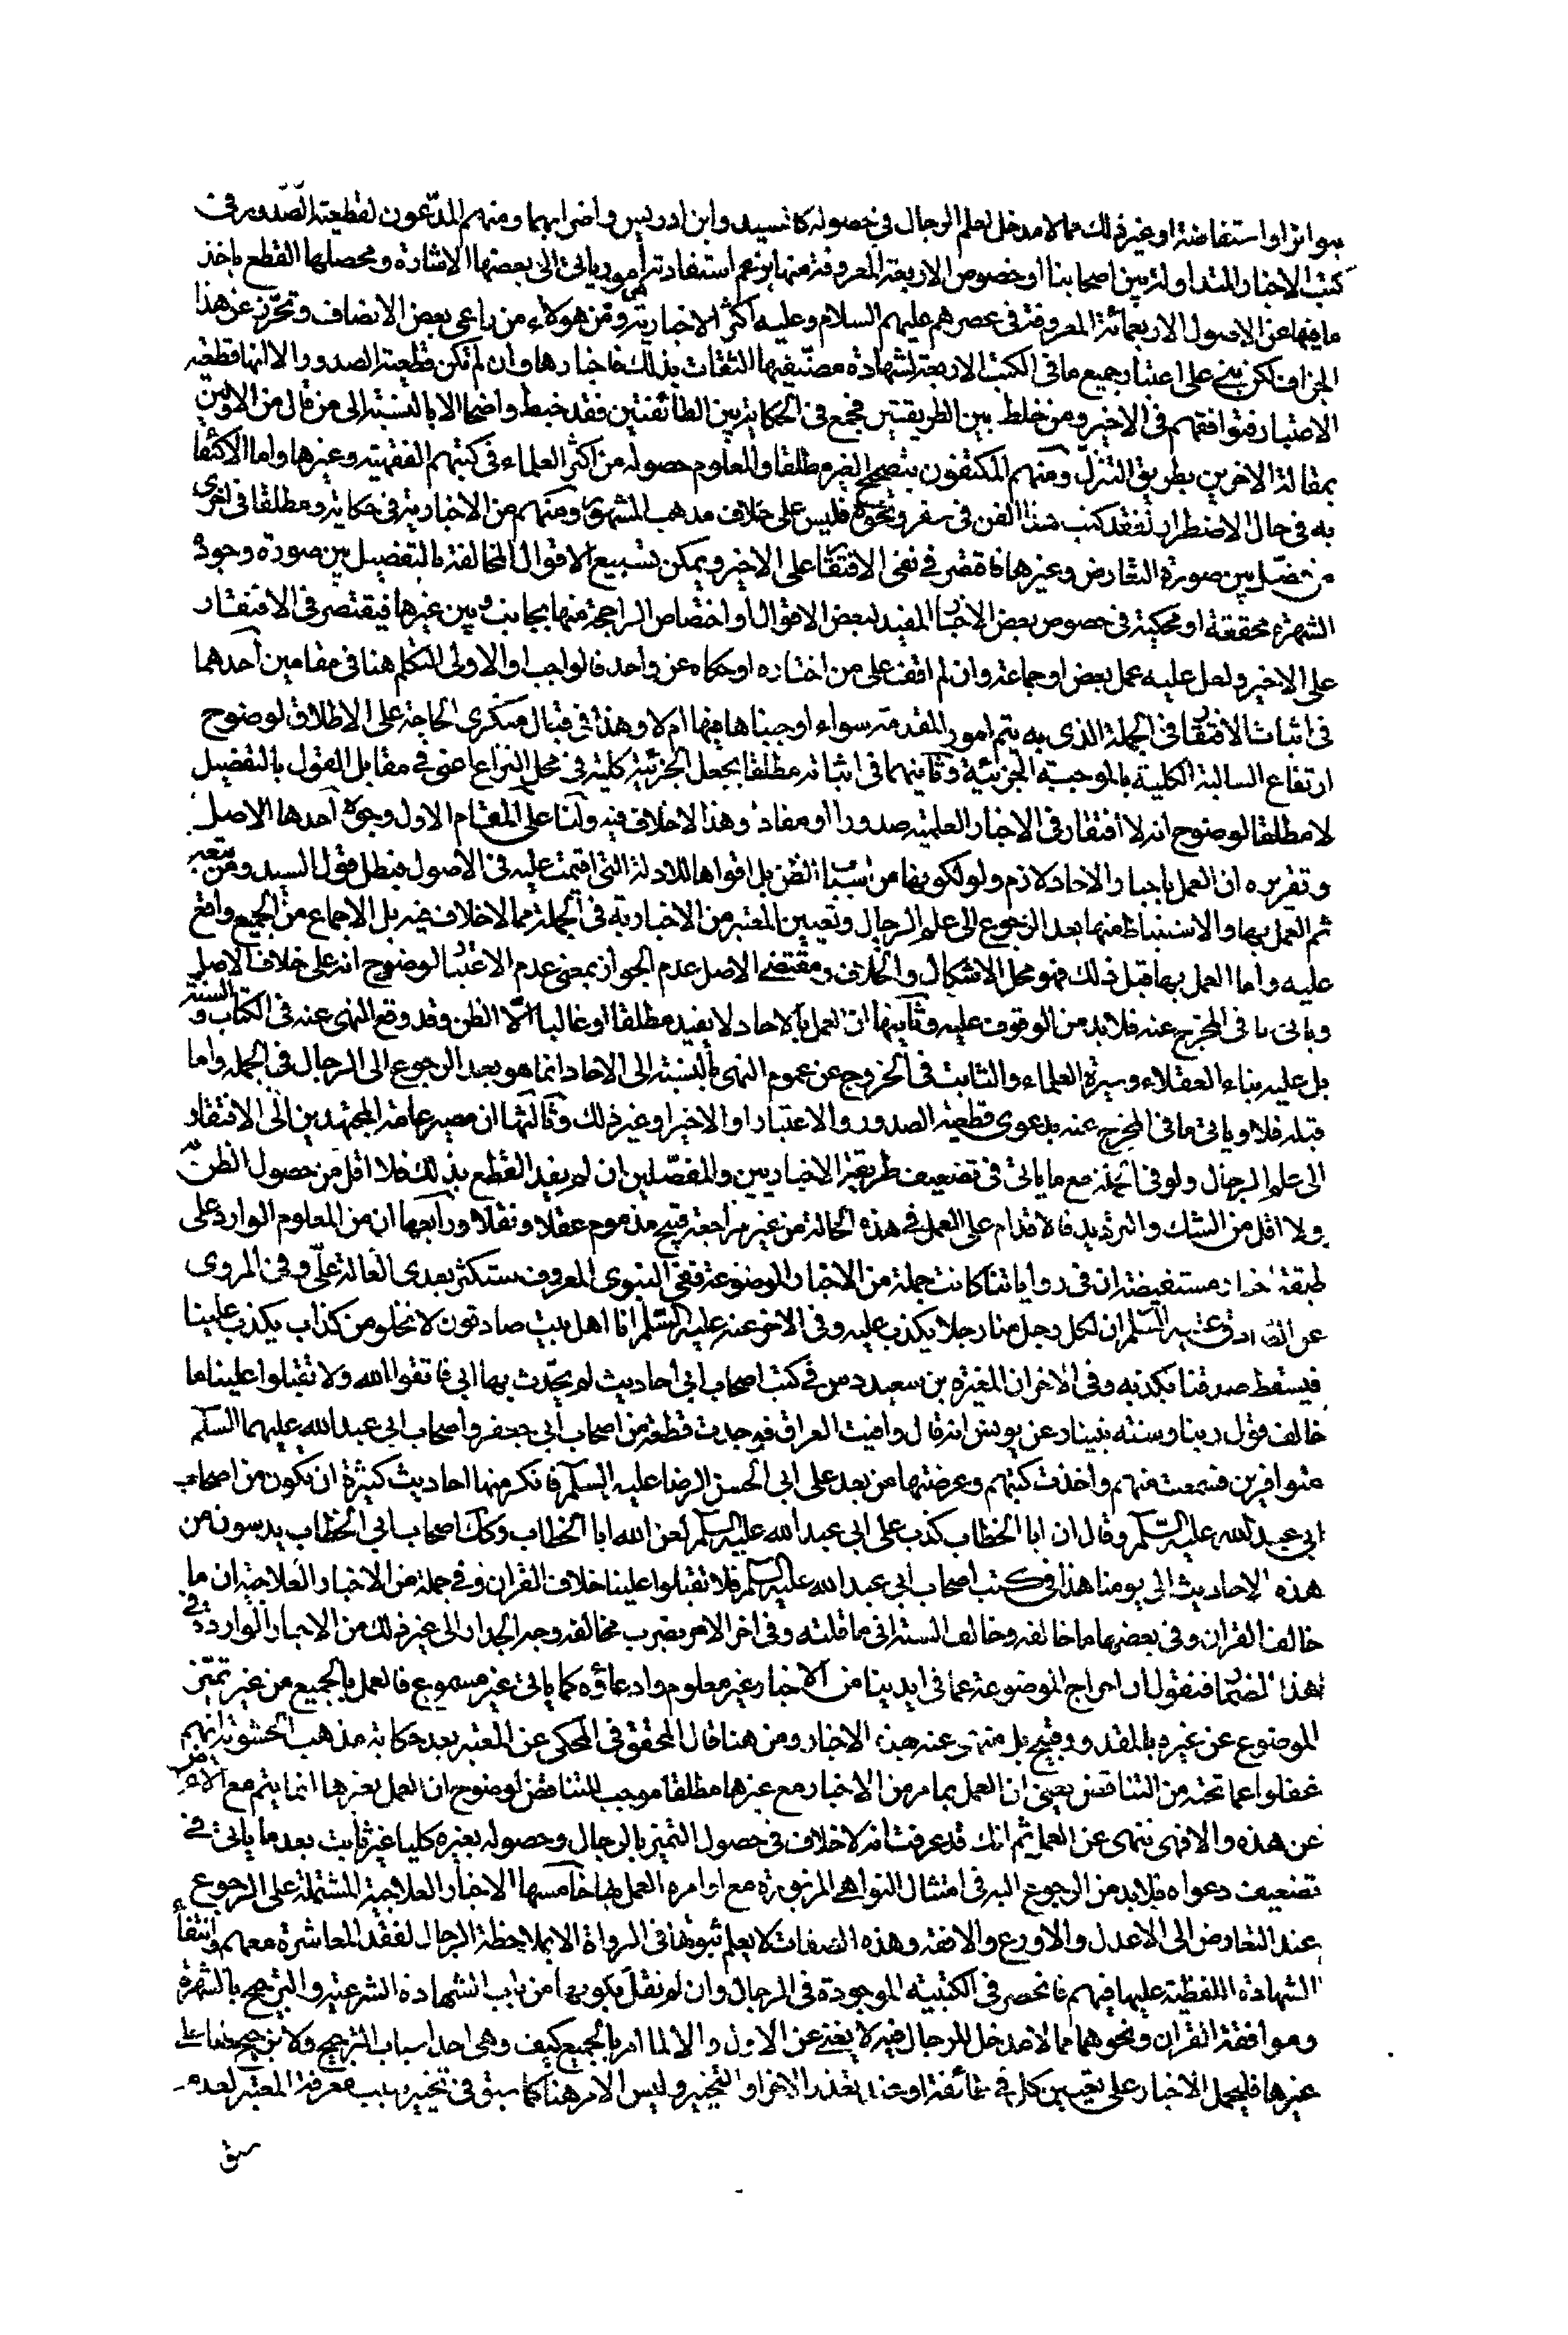 بتواترا واستفاضة او غير ذلك مما لا مدخل لعلم الرجال فى حصوله كالسيد وابن ادريس واضرابهما ومنهم المدّعون لقطعية الصّدور فى
كتب الاخبار المتداولة بين اصحابنا او خصوص الاربعة المعروفة منها بزعم استفادته امور ياتى الى بعضها الاشارة ومحصلها القطع باخذ
ما فيها عن الاصول الاربعمائة المعروفة فى عصرهم عليهم السلام وعليه اكثر الاخبارية ومن هؤلاء من راعى بعض الانصاف وتحرّز عن هذا
الجزاف لكن بنى على اعتبار جميع ما فى الكتب الاربعة لشهادة مصنّفيها الثقات بذلك فاخبارها وان لم تكن قطعية الصدور الا انها قطعية
الاعتبار فتوافقهم فى الاخير ومن خلط بين الطريقتين فجمع فى الحكاية بين الطائفتين فقد خبط واضحا الا بالنسبة الى من قال من الاولين
بمقالة الاخرين بطريق التنزل ومنهم المكتفون بتصحيح الغير مطلقا والمعلوم حصوله من اكثر العلماء فى كتبهم الفقهية وغيرها واما الاكتفا
به فى حال الاضطرار لفقد كتب هذا الفن فى سفر ونحوه فليس على خلاف مذهب المشهور ومنهم من الاخبارية فى حكاية ومطلقا فى اخرى
من فصّل بين صورة التعارض وغيرها فاقتصر فى نفى الافتقار على الاخير ويمكن تسبيع الاقوال المخالفة بالتفصيل بين صورة وجود
الشهرة محققة او محكية فى خصوص بعض الاخبار المفيد لبعض الاقوال او اختصاص الراجحة منها بجانب وبين غيرها فيقتصر فى الافتقار
على الاخير ولعل عليه عمل بعض او جماعة وان لم اقف على من اختاره او حكاه عن واحد فالواجب او الاولى التكلم هنا فى مقامين احدهما
فى اثبات الافتقار فى الجملة الذى به يتم امور المقدمة سواء اوجبناها فيها ام لا وهذا فى قبال منكرى الحاجة على الاطلاق لوضوح
ارتفاع السالبة الكلية بالموجبة الجزئية وثانيهما فى اثباته مطلقا بجعل الجزئية كلية فى محل النزاع اعنى فى مقابل القول بالتفصيل
لا مطلقا لوضوح انه لا افتقار فى الاخبار العلمية صدورا او مفادا وهذا لا خلاف فيه ولنا على المقام الاول وجوه احدها الاصل
وتقريره ان العمل باخبار الاحاد لازم ولو لكونها من اسباب الظن بل اقواها للادلة التى اقيمت عليه فى الاصول فبطل قول السيد ومن تبعه
ثم العمل بها والاستنباط منها بعد الرجوع الى علم الرجال وتعيين المعتبر من الاخبار به فى الجملة مما لا خلاف فيه بل الاجماع من الجميع واقع
عليه واما العمل بها قبل ذلك فهو محل الاشكال والخلاف ومقتضى الاصل عدم الجواز بمعنى عدم الاعتبار لوضوح انه على خلاف الاصل
وياتى ما فى المخرج عنه فلا بد من الوقوف عليه وثانيها ان العمل بالاحاد لا يفيد مطلقا او غالبا الّا الظن وقد وقع النهى عنه فى الكتاب والسنة
بل عليه بناء العقلاء وسيرة العلماء والثابت فى الخروج عن عموم النهى بالنسبة الى الاحاد انما هو بعد الرجوع الى الرجال فى الجملة واما
قبله فلا وياتى ما فى المخرج عنه بدعوى قطعية الصدور والاعتبار او الاخير او غير ذلك وثالثها ان مصير عامة المجتهدين الى الافتقار
الى علم الرجال ولو فى الجملة مع ما ياتى فى تضعيف طريقة الاخباريين والمفصّلين ان لم يفد القطع بذلك فلا اقل من حصول الظنّ
ولا اقل من الشك والترديد فالاقدام على العمل فى هذه الحالة من غير مراجعة قبيح مذموم عقلا ونقلا ورابعها ان من المعلوم الوارد على
طبقه اخبار مستفيضة ان فى رواياتنا كانت جملة من الاخبار الموضوعة ففى النبوى المعروف ستكثر بعدى القالة علىّ وفى المروى
عن الصادق عليه السّلم ان لكل رجل منا رجلا يكذب عليه وفى الاخر عنه عليه السّلم انا اهل بيت صادقون لا نخلو من كذاب يكذب علينا
فيسقط صدقنا بكذبه وفى الاخر ان المغيرة بن سعيد دس فى كتب اصحاب ابى احاديث لم يحدّث بها ابى فاتقوا الله ولا تقبلوا علينا ما
خالف قول ربنا وسنته نبينا وعن يونس انه قال وافيت العراق فوجدت قطعة من اصحاب ابى جعفر واصحاب ابى عبد الله عليهما السلم
متوافرين فسمعت منهم واخذت كتبهم وعرضتها من بعد على ابى الحسن الرضا عليه السلم فانكر منها احاديث كثيرة ان يكون من اصحاب
ابى عبد الله عليه السّلم وقال ان ابا الخطاب كذب على ابى عبد الله عليه السلم لعن الله ابا الخطاب وكك اصحاب ابى الخطاب يدسون من
هذه الاحاديث الى يومنا هذا فى كتب اصحاب ابى عبد الله عليه السلم فلا تقبلوا علينا خلاف القران وفى جملة من الاخبار العلاجية ان ما
خالف القران وفى بعضها ما خالفه وخالف السنة انى ما قلته وفى اخر الامر بضرب مخالفه وجه الجدار الى غير ذلك من الاخبار الواردة فى
هذا المضمار فنقول ان اخراج الموضوعة عما فى ايدينا من الاخبار غير معلوم وادعاؤه كما ياتى غير مسموع فالعمل بالجميع من غير تميّز
الموضوع عن غيره بالمقدور قبيح بل منهى عنه بهذه الاخبار ومن هنا قال المحقق فى المحكى عن المعتبر بعد حكاية مذهب الحشوية انهم
غفلوا عما تحته من التناقض يعنى ان العمل بما مر من الاخبار مع غيرها مطلقا موجب للتناقض لوضوح ان العمل بغيرها انما يتم مع الاعراض
عن هذه والا فهى تنهى عن العمل ثم انك قد عرفت انه لا خلاف فى حصول التميز بالرجال وحصوله بغيره كليا غير ثابت بعد ما ياتى فى
تضعيف دعواه فلا بد من الرجوع اليه فى امتثال النواهى المزبورة مع اوامره العمل بها خامسها الاخبار العلاجية المشتملة على الرجوع
عند التعارض الى الاعدل والاورع والافقه وهذه الصفات لا يعلم ثبوتها فى الرواة الا بملاحظة الرجال لفقد المعاشرة معهم وانتفاء
الشهادة اللفظية عليها فيهم فانحصر فى الكتبية الموجودة فى الرجال وان لم نقل بكونها من باب الشهادة الشرعية والترجيح بالشهرة
وموافقة القران ونحوهما مما لا مدخل للرجال فيه لا يغنى عن الاول والا لما امر بالجميع كيف وهى احد اسباب الترجيح ولا ترجيح لها على
غيرها فليحمل الاخبار على تعيين كل فى طائفة او عند تعذر الاخر او التخيير وليس الامر هنا كما سبق فى تخيير معرفة المعتبر لعدم
سبق